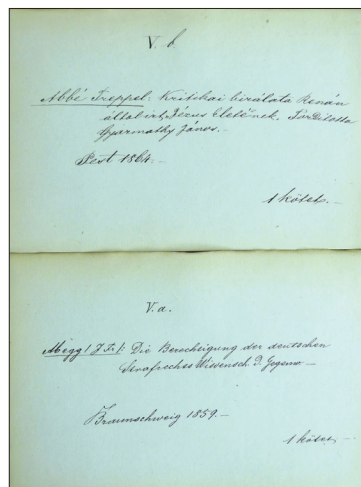 V. b
Abbé Freppel: Kritikai birálata Renán
által irt Jézus életének. Forditotta
Gyarmathy János.-
Pest 1864.-
1 kötet.-
V. a.
Die Berechtigung der deutschen
Wissensch. d. Gegenw-
Braunschweig 1859.-
1 kötet.-